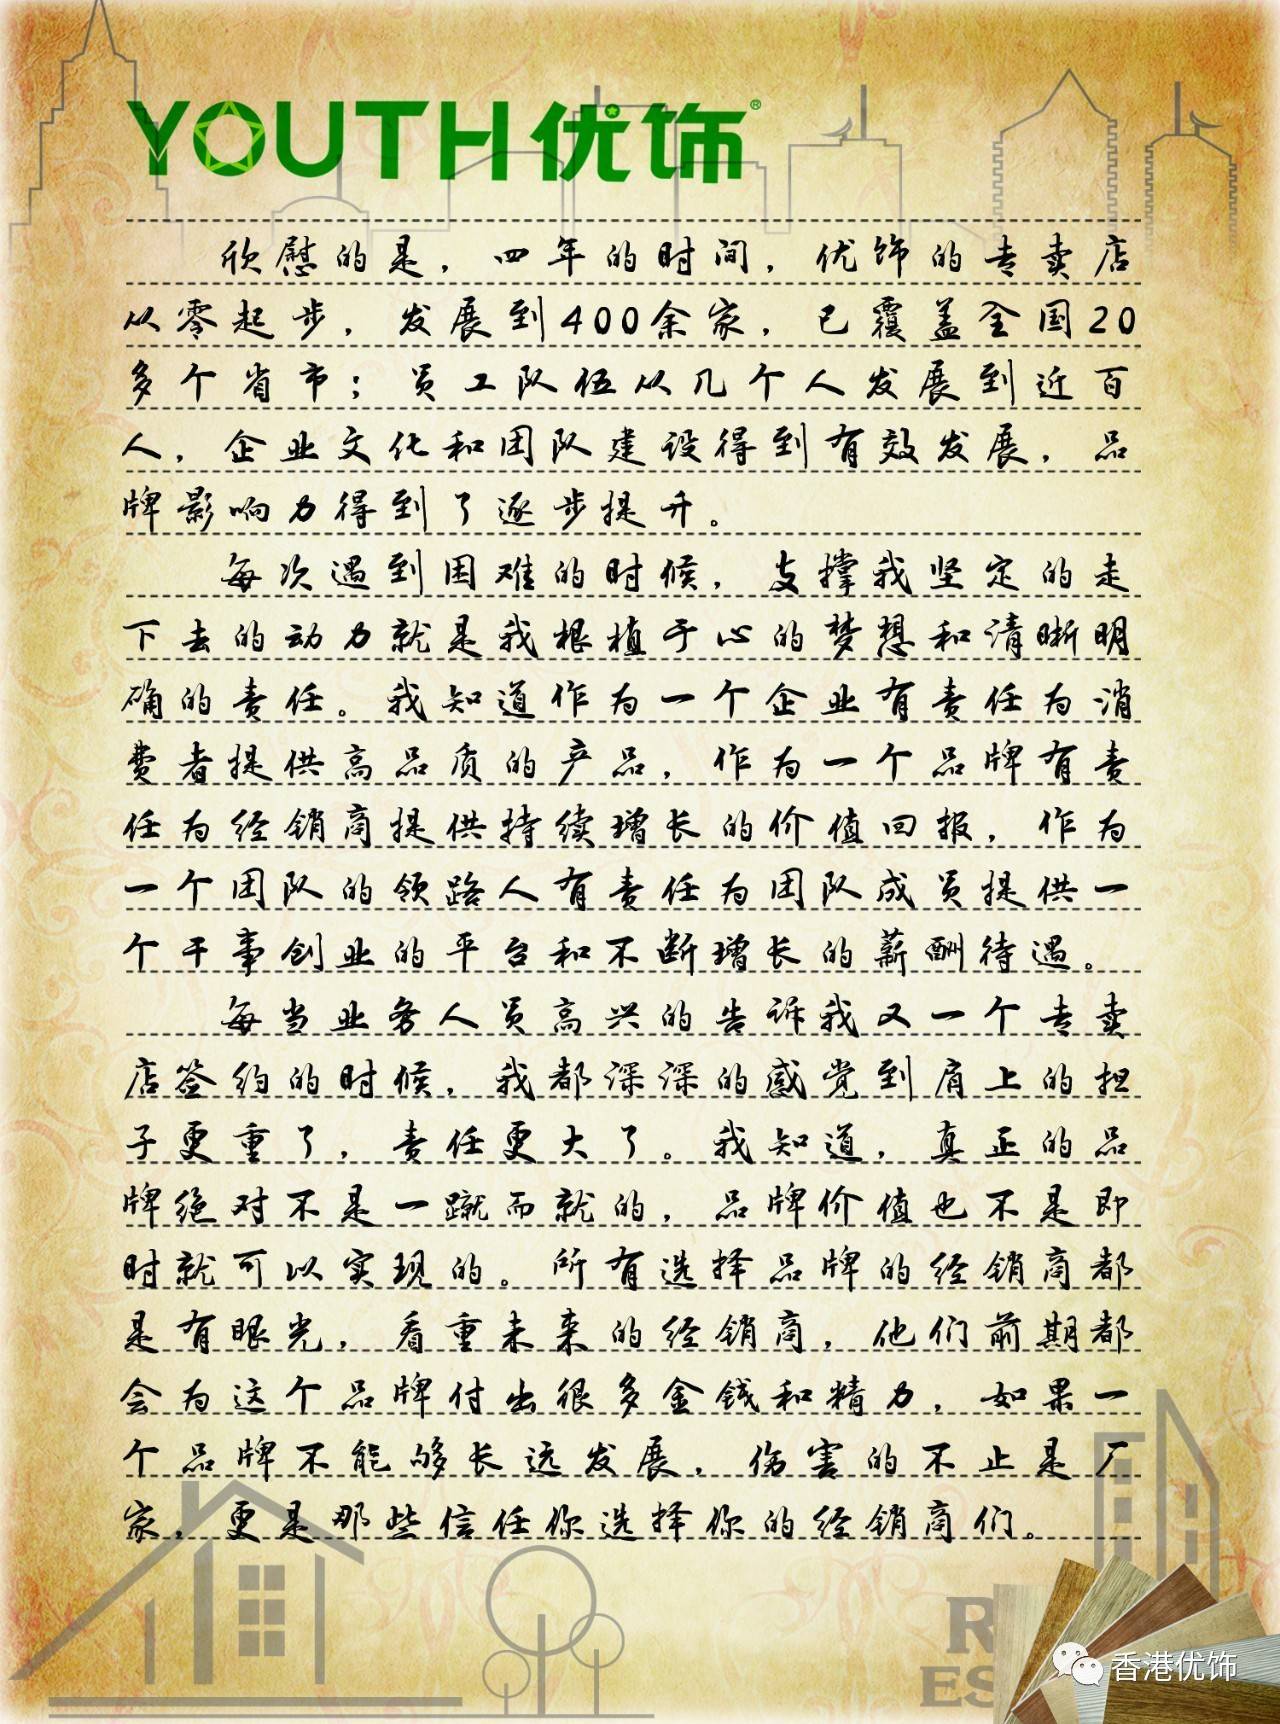 YOUTH优饰®
欣慰的是，四年的时间，优饰的专卖店
从零起步，发展到400余家，已覆盖全国20
多个省市；员工队伍从几个人发展到近百
人，企业文化和团队建设得到有效发展，品
牌影响力得到了逐步提升。
每次遇到困难的时候，支撑我坚定的走
下去的动力就是我根植于心的梦想和清晰明
确的责任。我知道作为一个企业有责任为消
费者提供高品质的产品，作为一个品牌有责
任为经销商提供持续增长的价值回报，作为
一个团队的领路人有责任为团队成员提供一
个干事创业的平台和不断增长的薪酬待遇。
每当业务人员高兴的告诉我又一个专卖
店签约的时候，我都深深的感觉到肩上的担
子更重了，责任更大了。我知道，真正的品
牌绝对不是一蹴而就的，品牌价值也不是即
时就可以实现的。所有选择品牌的经销商都
是有眼光，看重未来的经销商，他们前期都
会为这个品牌付出很多金钱和精力，如果一
个品牌不能够长远发展，伤害的不止是厂
家，更是那些信任你选择你的经销商们。
R
ES
香港优饰